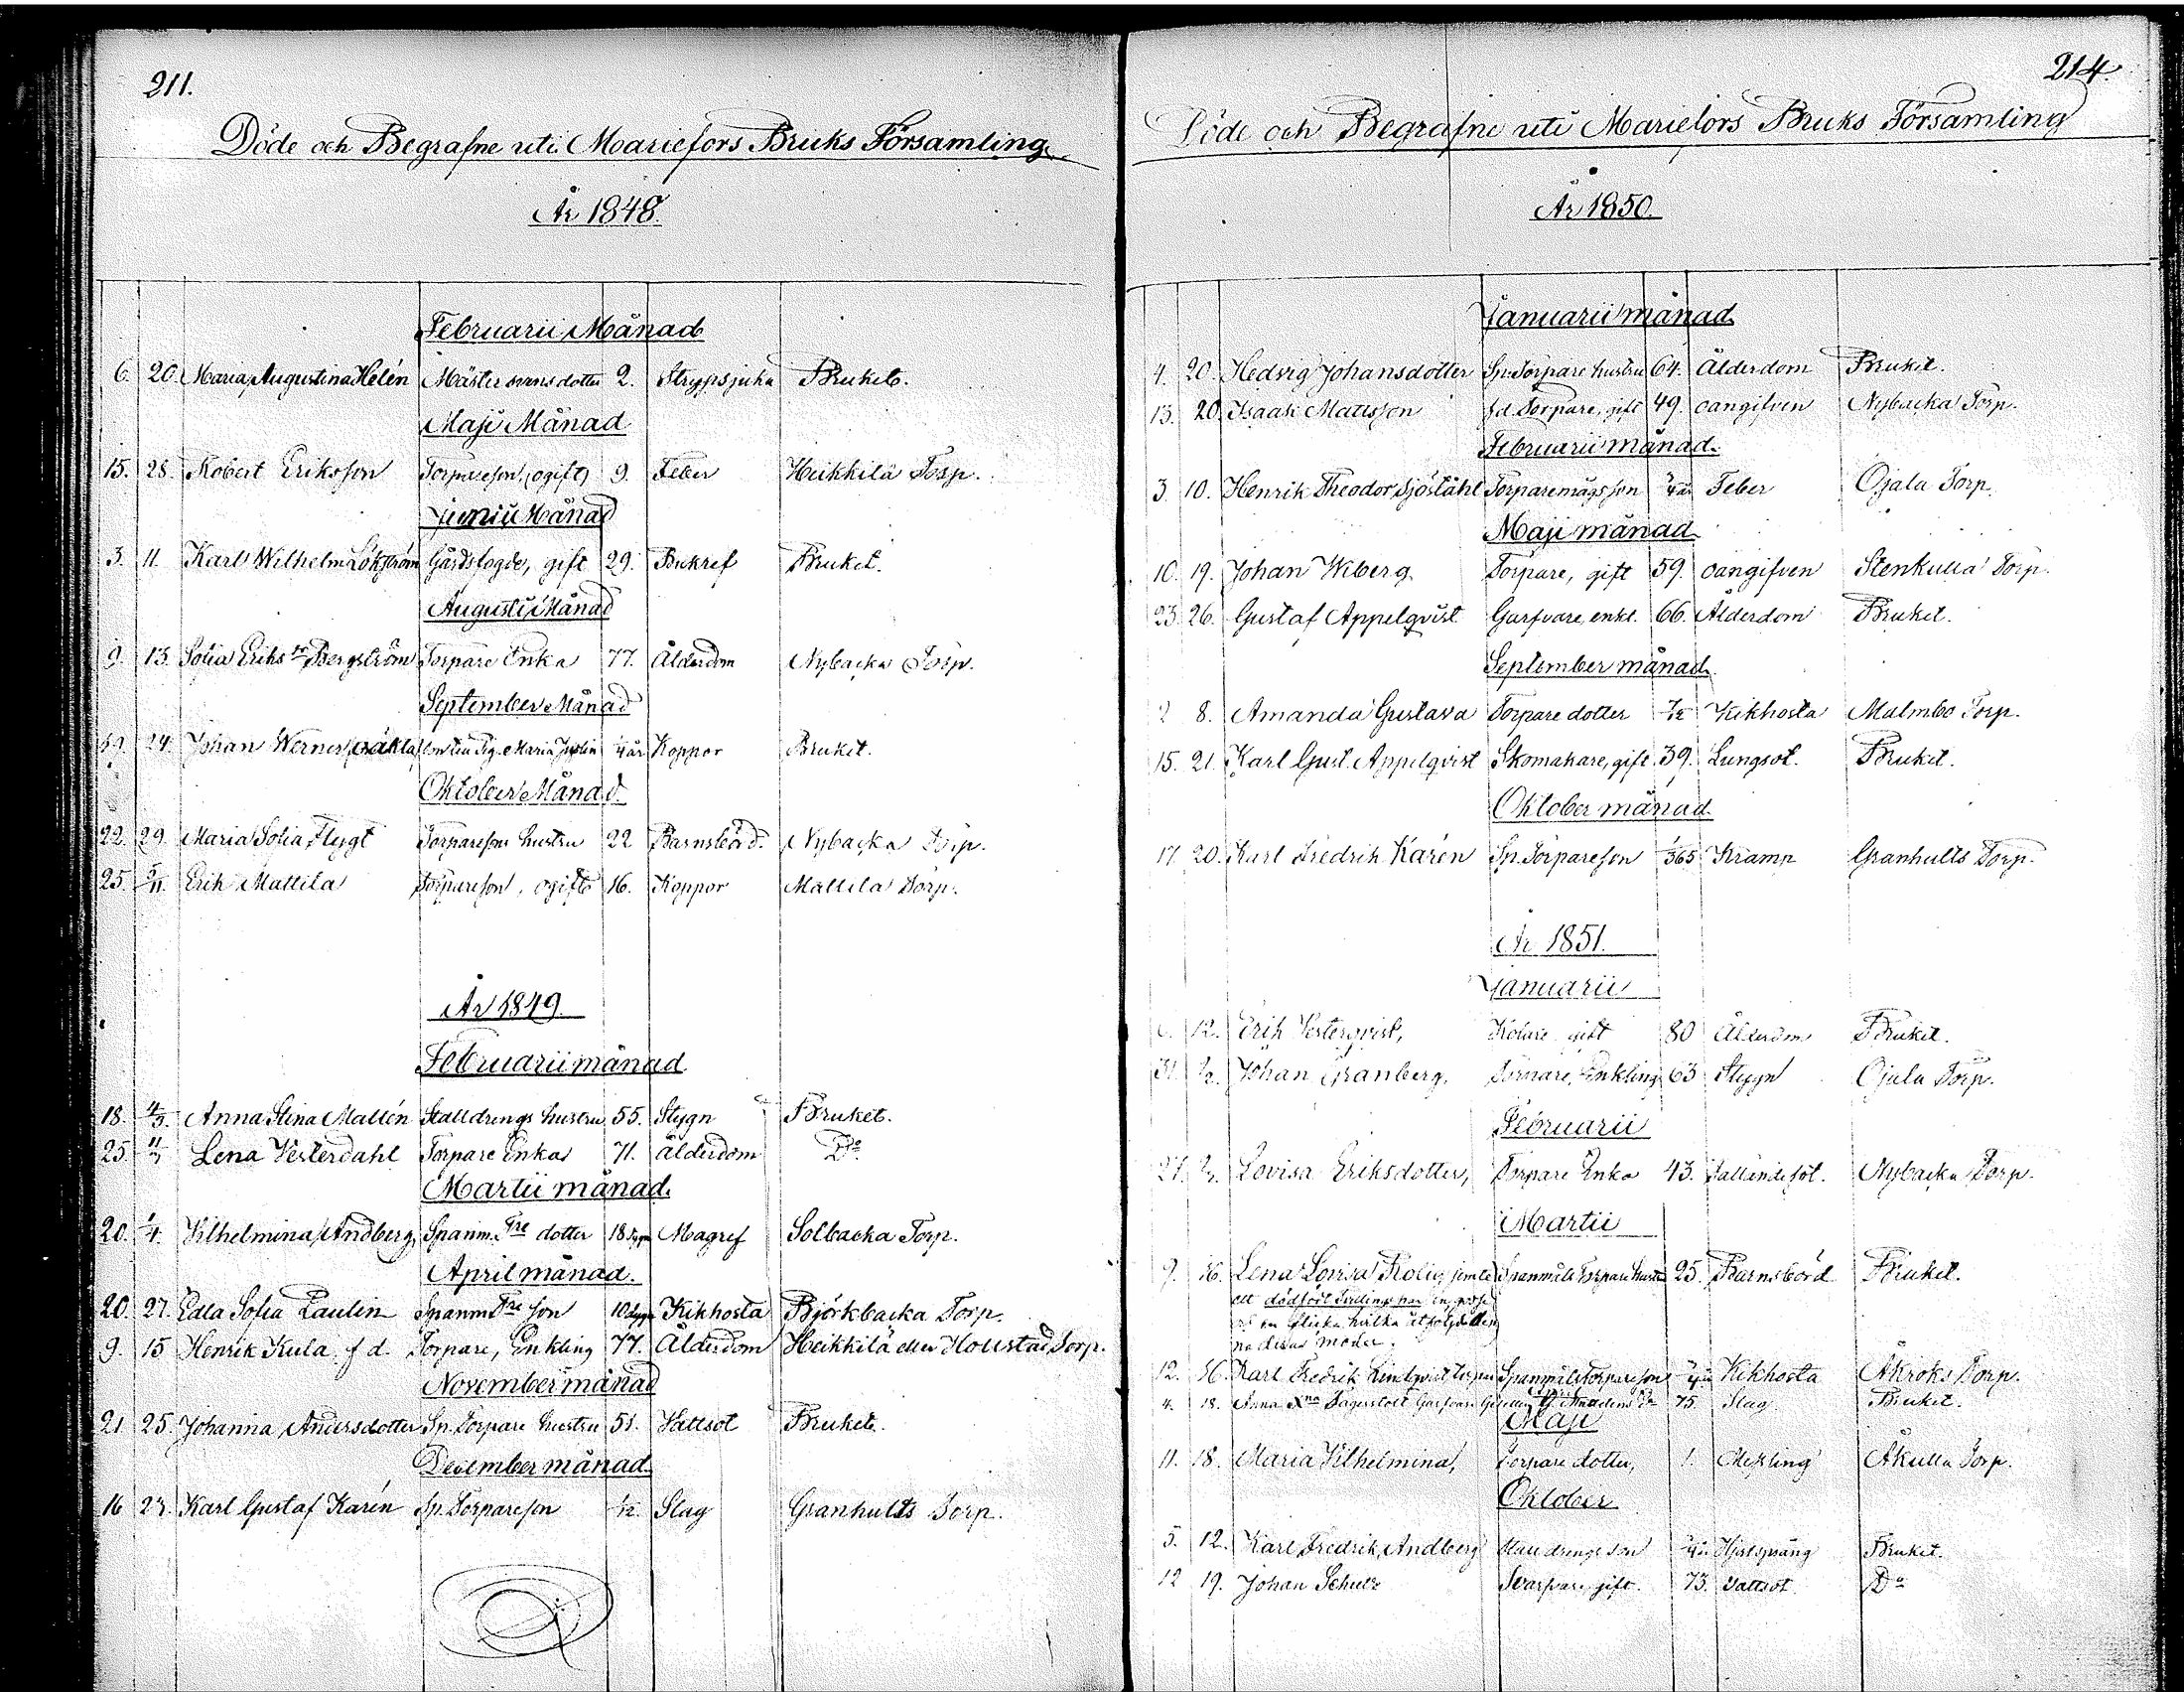 211.
Döde och Begrafne uti Mariefors Bruks Församling
År 1848.
Februarii Månad
6. 20. Maria Augustina Helén Mästersvens dotter 2. Strypsjuka Bruket.
Maji Månad
15. 28. Robert Eriksson Torpareson, (ogift) 9. Feber Heikkilä Torp.
Junii Månad
3. 11. Karl Wilhelm Lökström Gårdsfogde, gift 29. Bukref Bruket.
Augusti Månad
9. 13. Sofia Eriksdr Bergström Torpare Enka 77. Ålderdom Nybacka Torp.
September Månad
19. 24. Johan Werner, oäkta Pig. Maria Justin /4 år Koppor Bruket.
Oktober Månad.
22. 29. Maria Sofia Flygt Torparesons hustru 22 Barnsbörd. Nybacka Torp.
25. 5/11. Erik Mattila Torpareson, ogift 16. Koppor Mattila Torp.
År 1849.
Februarii månad
18. 4/3. Anna Stina Mallén Stalldrengs hustru 55. Stygn Bruket.
25. 11/3 Lena Vesterdahl Torpare Enka 71. Ålderdom Do
Martii månad.
20. 1/4. Vilhelmina Andberg, Spanm. Tre dotter 18 Magref Solbacka Torp.
April månad.
20. 27. Edla Sofia Paulin Spanm Tre son 10 Kikhosta Björkbacka Torp.
9. 15 Henrik Kula f d. Torpare, Enkling 77. Ålderdom Heikkilä eller Houstad Torp.
November månad
21. 25. Johanna Andersdotter Sp. Torpare hustru 51. Vattsot Bruket.
December månad.
16 23. Karl Gustaf Karén Sp. Torpareson 1/12. Slag Granhults Torp.
214.
Döde och Begrafne uti Mariefors Bruks Församling
År 1850.
Januarii månad
4. 20. Hedvig Johansdotter Sp. Torpare hustru 64. Ålderdom Bruket.
13. 20. Isaak Mattsson f.d. Torpare, gift 49. oangifven Nybacka Torp.
Februarii månad.
3. 10. Henrik Theodor Sjöståhl Torparemågsson /4 år Feber Ojala Torp.
Maji månad
10. 19. Johan Wiberg Torpare, gift 59. oangifven Stenkulla Torp.
23. 26. Gustaf Appelqvist Garfvare, enkl. 66. Ålderdom Bruket.
September månad
2 8. Amanda Gustava Torpare dotter 7/12 Kikhosta Malmbo Torp.
15. 21. Karl Gust. Appelqvist Skomakare, gift 39. Lungsot. Bruket.
Oktober månad.
17. 20. Karl Fredrik Karén Sp. Torpareson 1/365 Kramp Granhults Torp.
År 1851.
Januarii
6. 12. Erik Vesterqvist, Kolare gift 80 Ålderdom Bruket.
31. 2/2. Johan Granberg, Torpare, Enkling 63 Stygn Ojala Torp.
Februarii
27. 2/3. Lovisa Eriksdotter, Torpare Enka 43. Fallandesot. Nybacka Torp.
Martii
9. 16. Lena Lovisa Spanmåls Torpare hustru 25. Barnsbörd Bruket.
ett dödfödt Tvillingspar en gosse
o en flicka hvilka åtföljde
na deras moder.
12. 16. Karl Fredrik Lindqvist Spanmåls Torpareson /4 år Kikhosta Åkroks Torp.
4. 18. Anna Xna Dagerstolt 75. Slag Bruket.
Maji
11. 18. Maria Vilhelmina, Torpare dotter, 1. Messling Åkulla Torp.
Oktober
5. 12. Karl Fredrik Andberg Stalldrengs son /4 år Hjertsprång Bruket.
12 19. Johan Schulz Svarfvare, gift. 73. Vattsot. Do